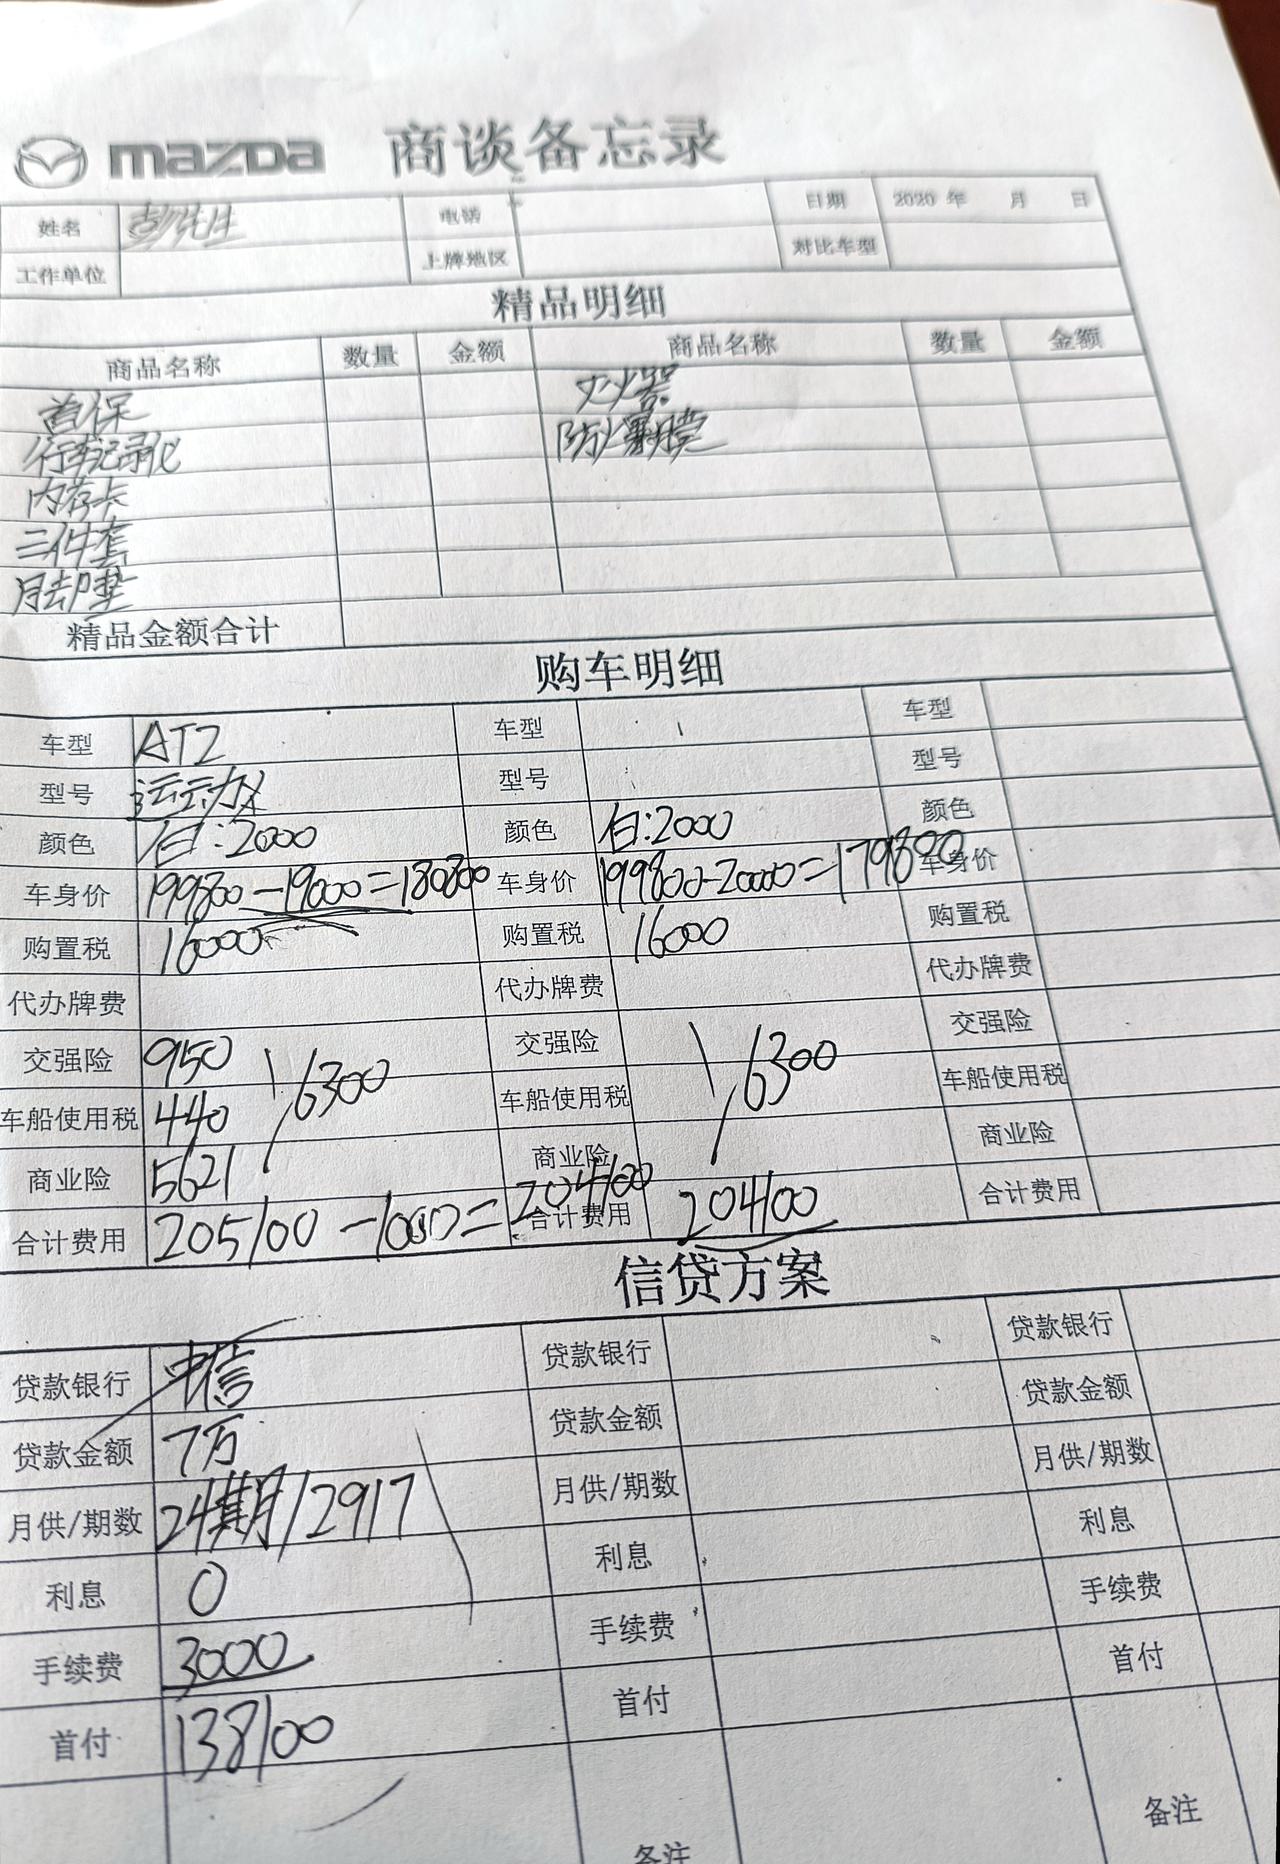 mazda 商谈备忘录
姓名 彭先生 电话 日期 2020 年 月 日
工作单位 上牌地区 对比车型
精品明细
商品名称 数量 金额 商品名称 数量 金额
首保 灭火器
行车记录仪 防爆膜
内存卡
三件套
脚垫
精品金额合计
购车明细
车型 ATZ 车型 车型
型号 运动版 型号 型号
颜色 白:2000 颜色 白:2000 颜色
车身价 199800-19000=180800 车身价 199800-20000=179800 车身价
购置税 16000 购置税 16000 购置税
代办牌费 代办牌费 代办牌费
交强险 950 交强险 交强险
6300 6300
车船使用税 440 车船使用税 车船使用税
商业险 5621 商业险 商业险
合计费用 205100-1000=204100 合计费用 204100 合计费用
信贷方案
贷款银行 中信 贷款银行 贷款银行
贷款金额 7万 贷款金额 贷款金额
月供/期数 24期/2917 月供/期数 月供/期数
利息 0 利息 利息
手续费 3000 手续费 手续费
首付 138100 首付 首付
备注 备注